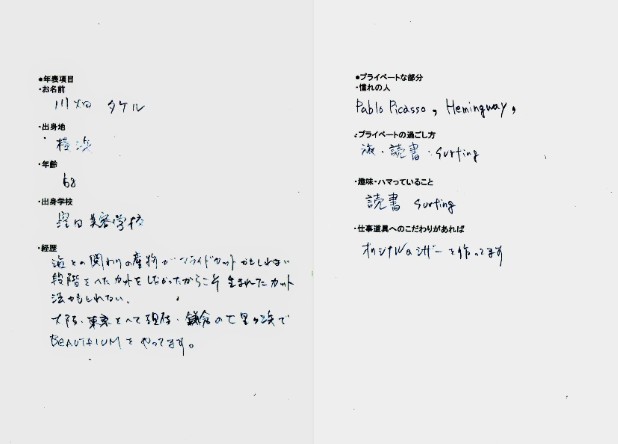 ●年表項目
・お名前
川畑 タケル
・出身地
横浜
・年齢
68
・出身学校
窪田美容学校
・経歴
海との関わりの産物がスライドカットかもしれない
段階をへたカットをしなかったからこそ生まれたカット
法かもしれない。
大阪・東京をへて現在・鎌倉の七里ヶ浜で
BEAUTRIUMをやってます。
●プライベートな部分
・憧れの人
Pablo Picasso, Hemingway,
・プライベートの過ごし方
海・読書・Surfing
・趣味・ハマっていること
読書 Surfing
・仕事道具へのこだわりがあれば
オリジナルのシザーを作ってます